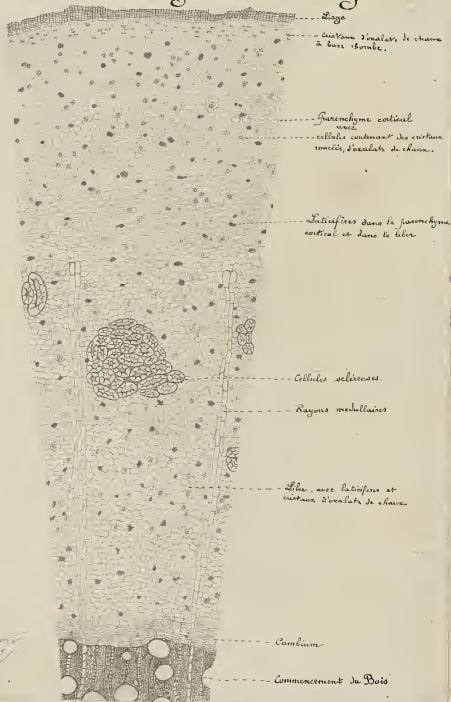 Liège
cristaux d'oxalate de chaux
à base rhombe.
Parenchyme cortical
avec
cellules contenant des cristaux
maclés, d'oxalate de chaux.
Laticifères dans le parenchyme
cortical et dans le liber
Cellules scléreuses.
Rayons medullaires
Liber, avec laticifères et
cristaux d'oxalate de chaux
Cambium
Commencement du Bois